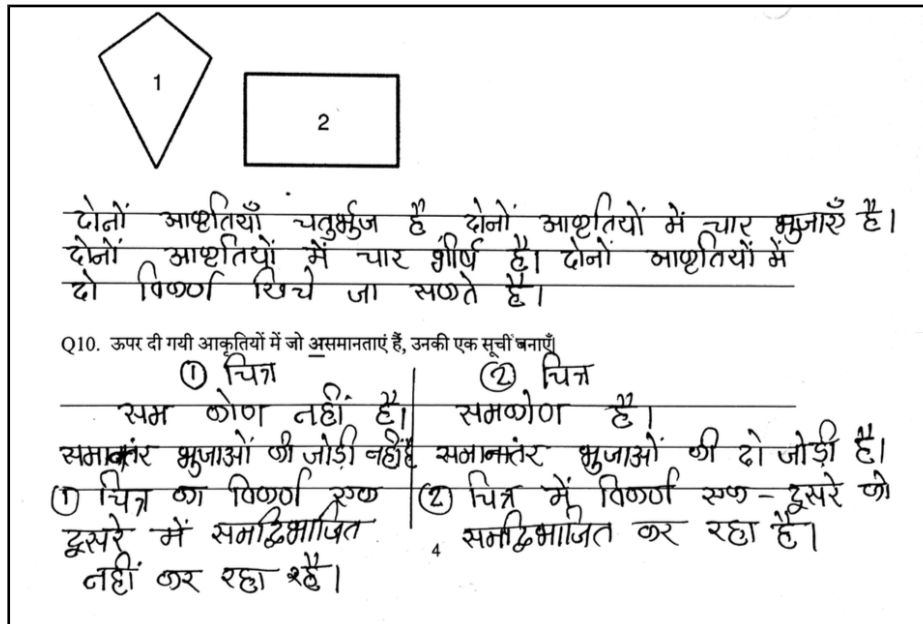 1
2
दोनों आकृतियाँ चतुर्भुज है दोनों आकृतियों में चार भुजाएँ है।
दोनों आकृतियों में चार शीर्ष है। दोनों आकृतियों में
दो विकर्ण खिचे जा सकते है।
Q10. ऊपर दी गयी आकृतियों में जो असमानताएं हैं, उनकी एक सूची बनाएँ।
① चित्र ② चित्र
सम कोण नहीं है। समकोण है।
समानतंर भुजाओं की जोड़ी नहीं है समानातंर भुजाओं की दो जोड़ी है।
① चित्र का विकर्ण एक ② चित्र में विकर्ण एक - दूसरे को
दूसरे में समद्विभाजित समद्विभाजित कर रहा है।
4
नहीं कर रहा है।